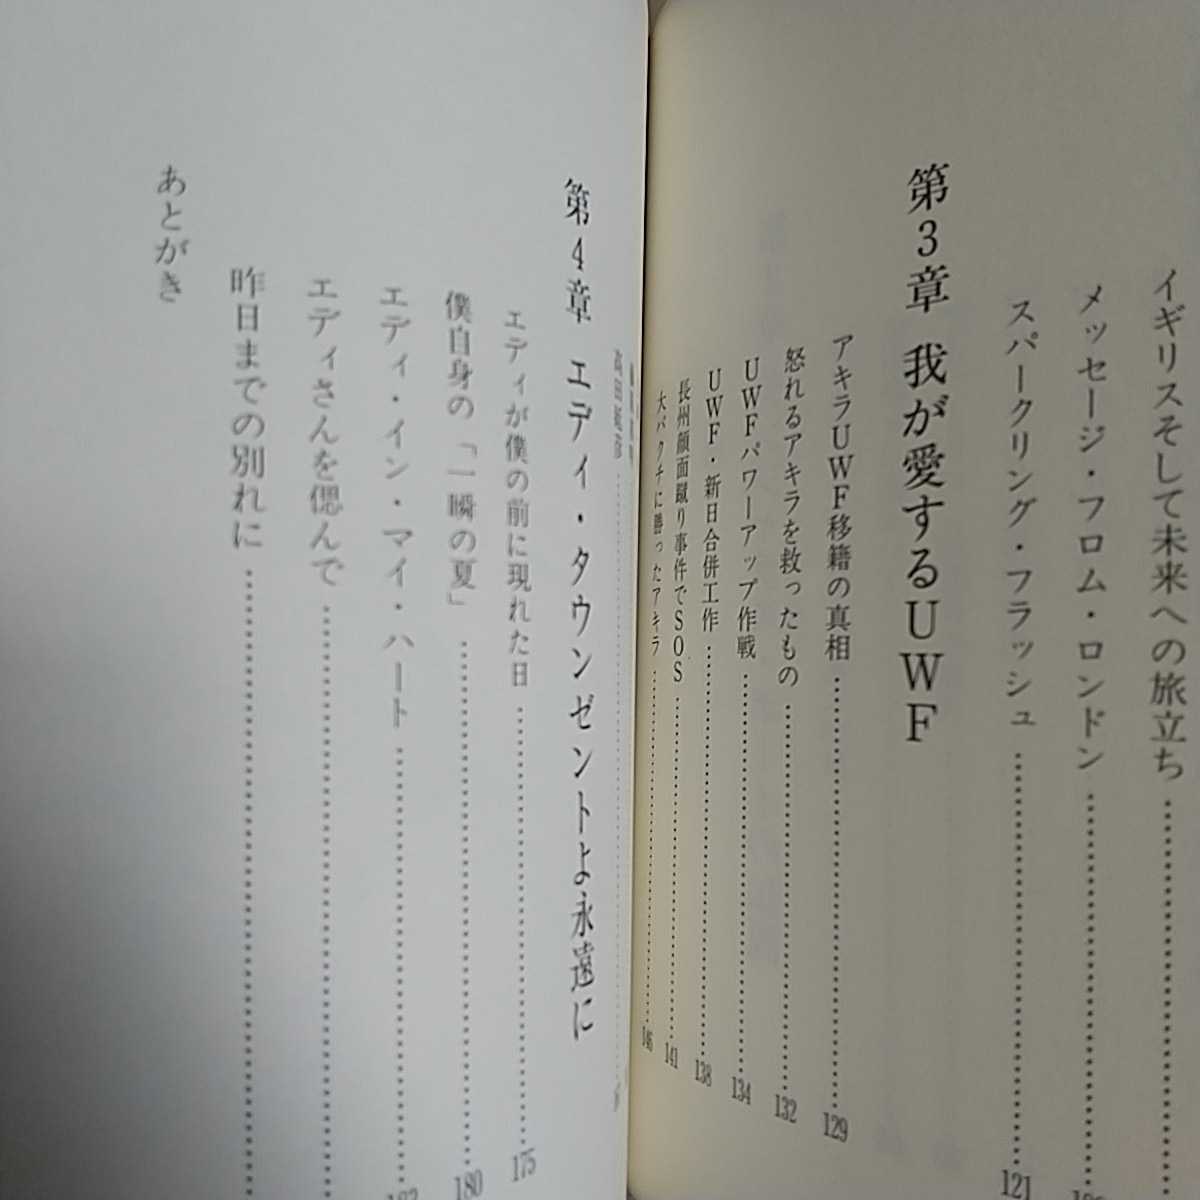 イギリスそして未来への旅立ち
メッセージ・フロム・ロンドン
スパークリング・フラッシュ 121
第3章 我が愛するUWF
アキラUWF移籍の真相 129
怒れるアキラを救ったもの 132
UWFパワーアップ作戦 134
UWF・新日合併工作 138
長州顔面蹴り事件でSOS 141
大バクチに勝ったアキラ 146
第4章 エディ・タウンゼントよ永遠に
エディが僕の前に現れた日 175
僕自身の「一瞬の夏」 180
エディ・イン・マイ・ハート
エディさんを偲んで
昨日までの別れに
あとがき